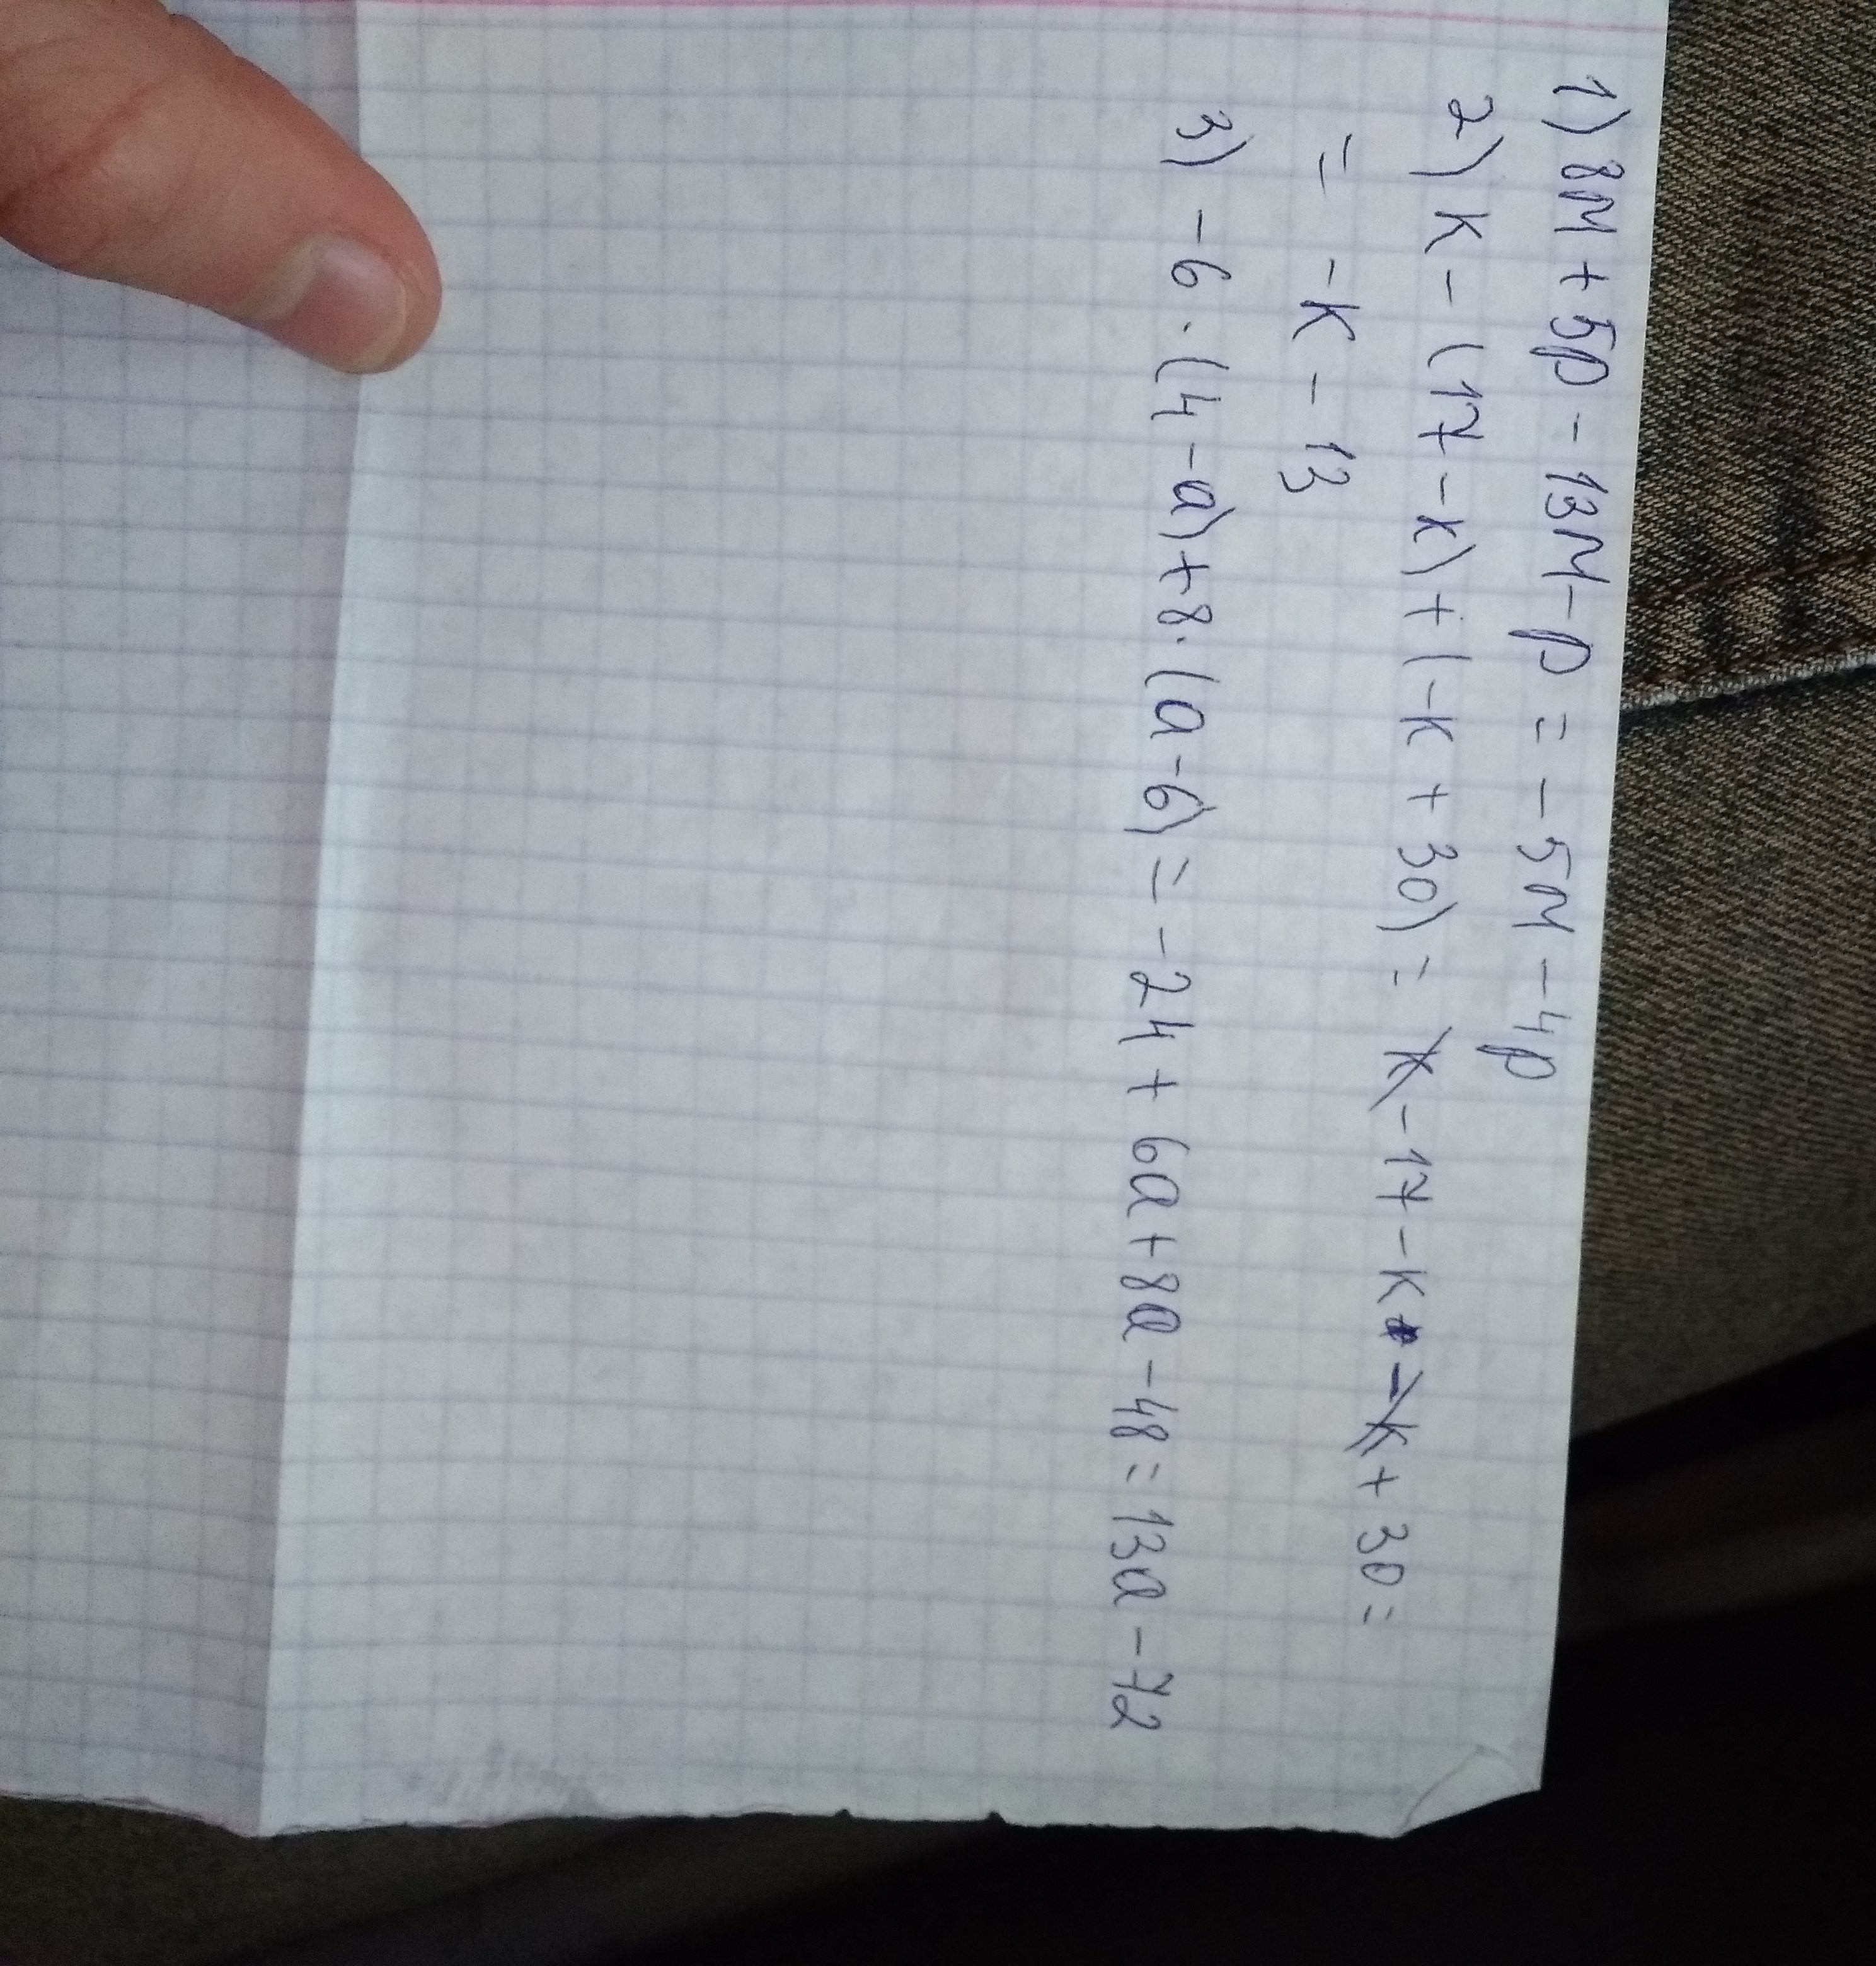 1) 8м + 5p - 13м - p = - 5м - 4p
2) к - (17 - к) + (-к + 30) = к - 17 - к - к + 30 =
= -к - 13
3) -6 · (4 - a) + 8 · (a - 6) = -24 + 6a + 8a - 48 = 13a - 72